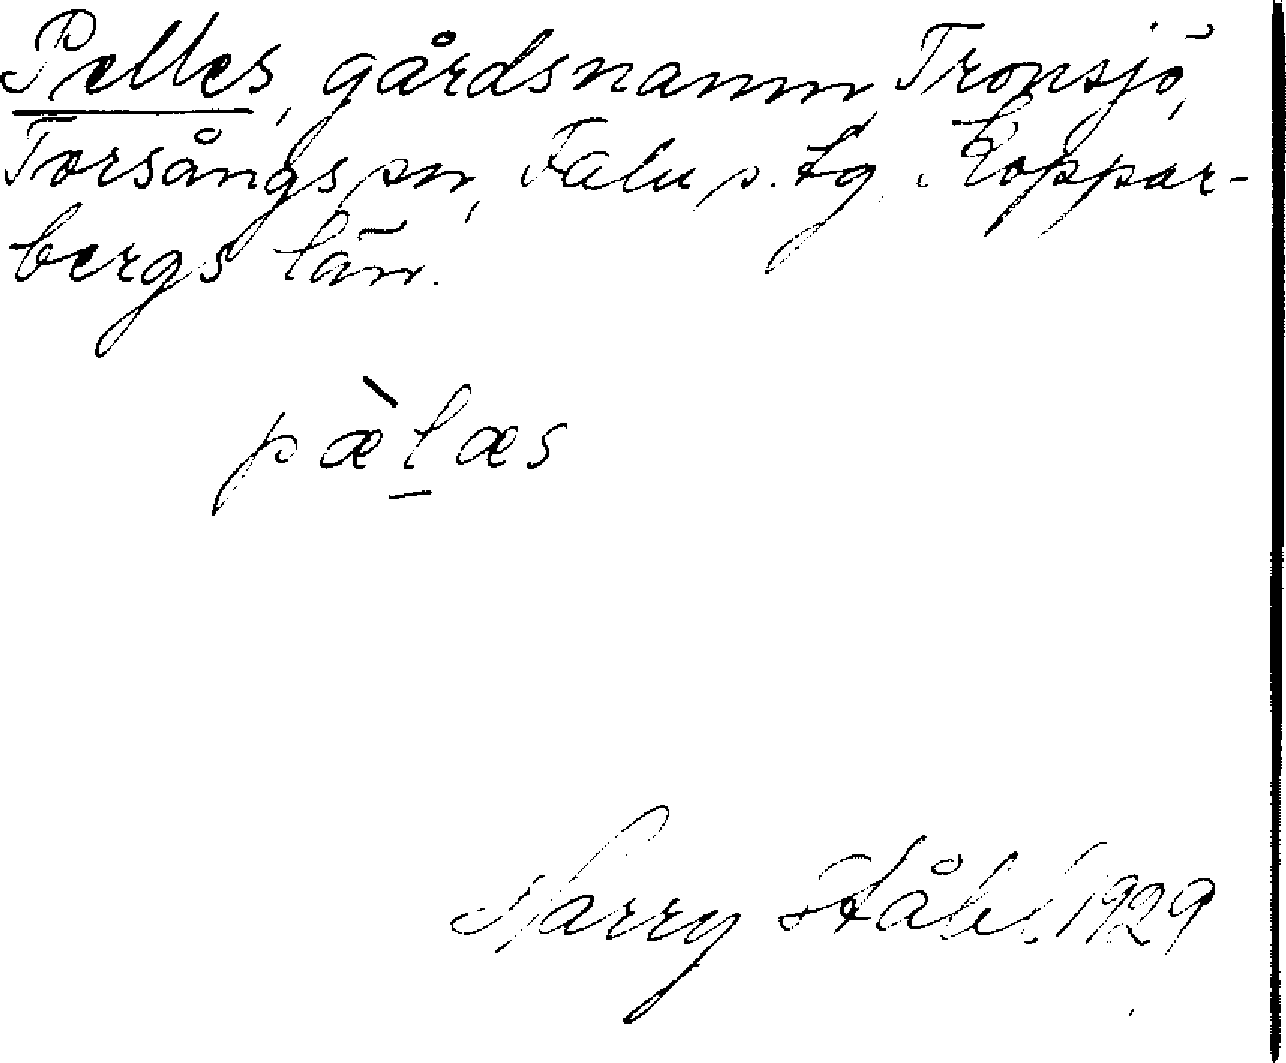 Pelles, gårdsnamn, Tronsjö,
Torsångs sn, Falu s. tg, Koppar-
bergs län.
pæ̀l̠æs
Harry Ståhl 1929